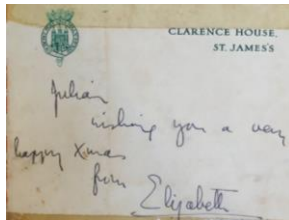 CLARENCE HOUSE,
ST. JAMES'S
Julian
wishing you a very
happy Xmas
from
Elizabeth